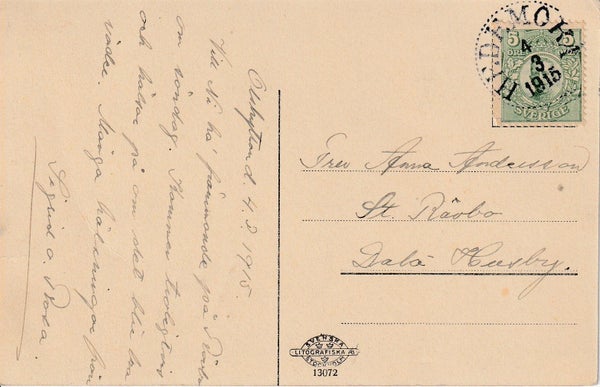 d. 4.3 1915.
Vill Ni ha främmande på
om söndag. Kommer troligtvis
och hälsa på om det blir bra
väder. Många hälsningar från
Sigrid o. Rosa.
HEDEMORA
4
3
1915
5 5
SVERIGE
Frev Anna Andersson
St. Råvbo
Dala Husby.
SVENSKA
LITOGRAFISKA AB
STOCKHOLM
13072